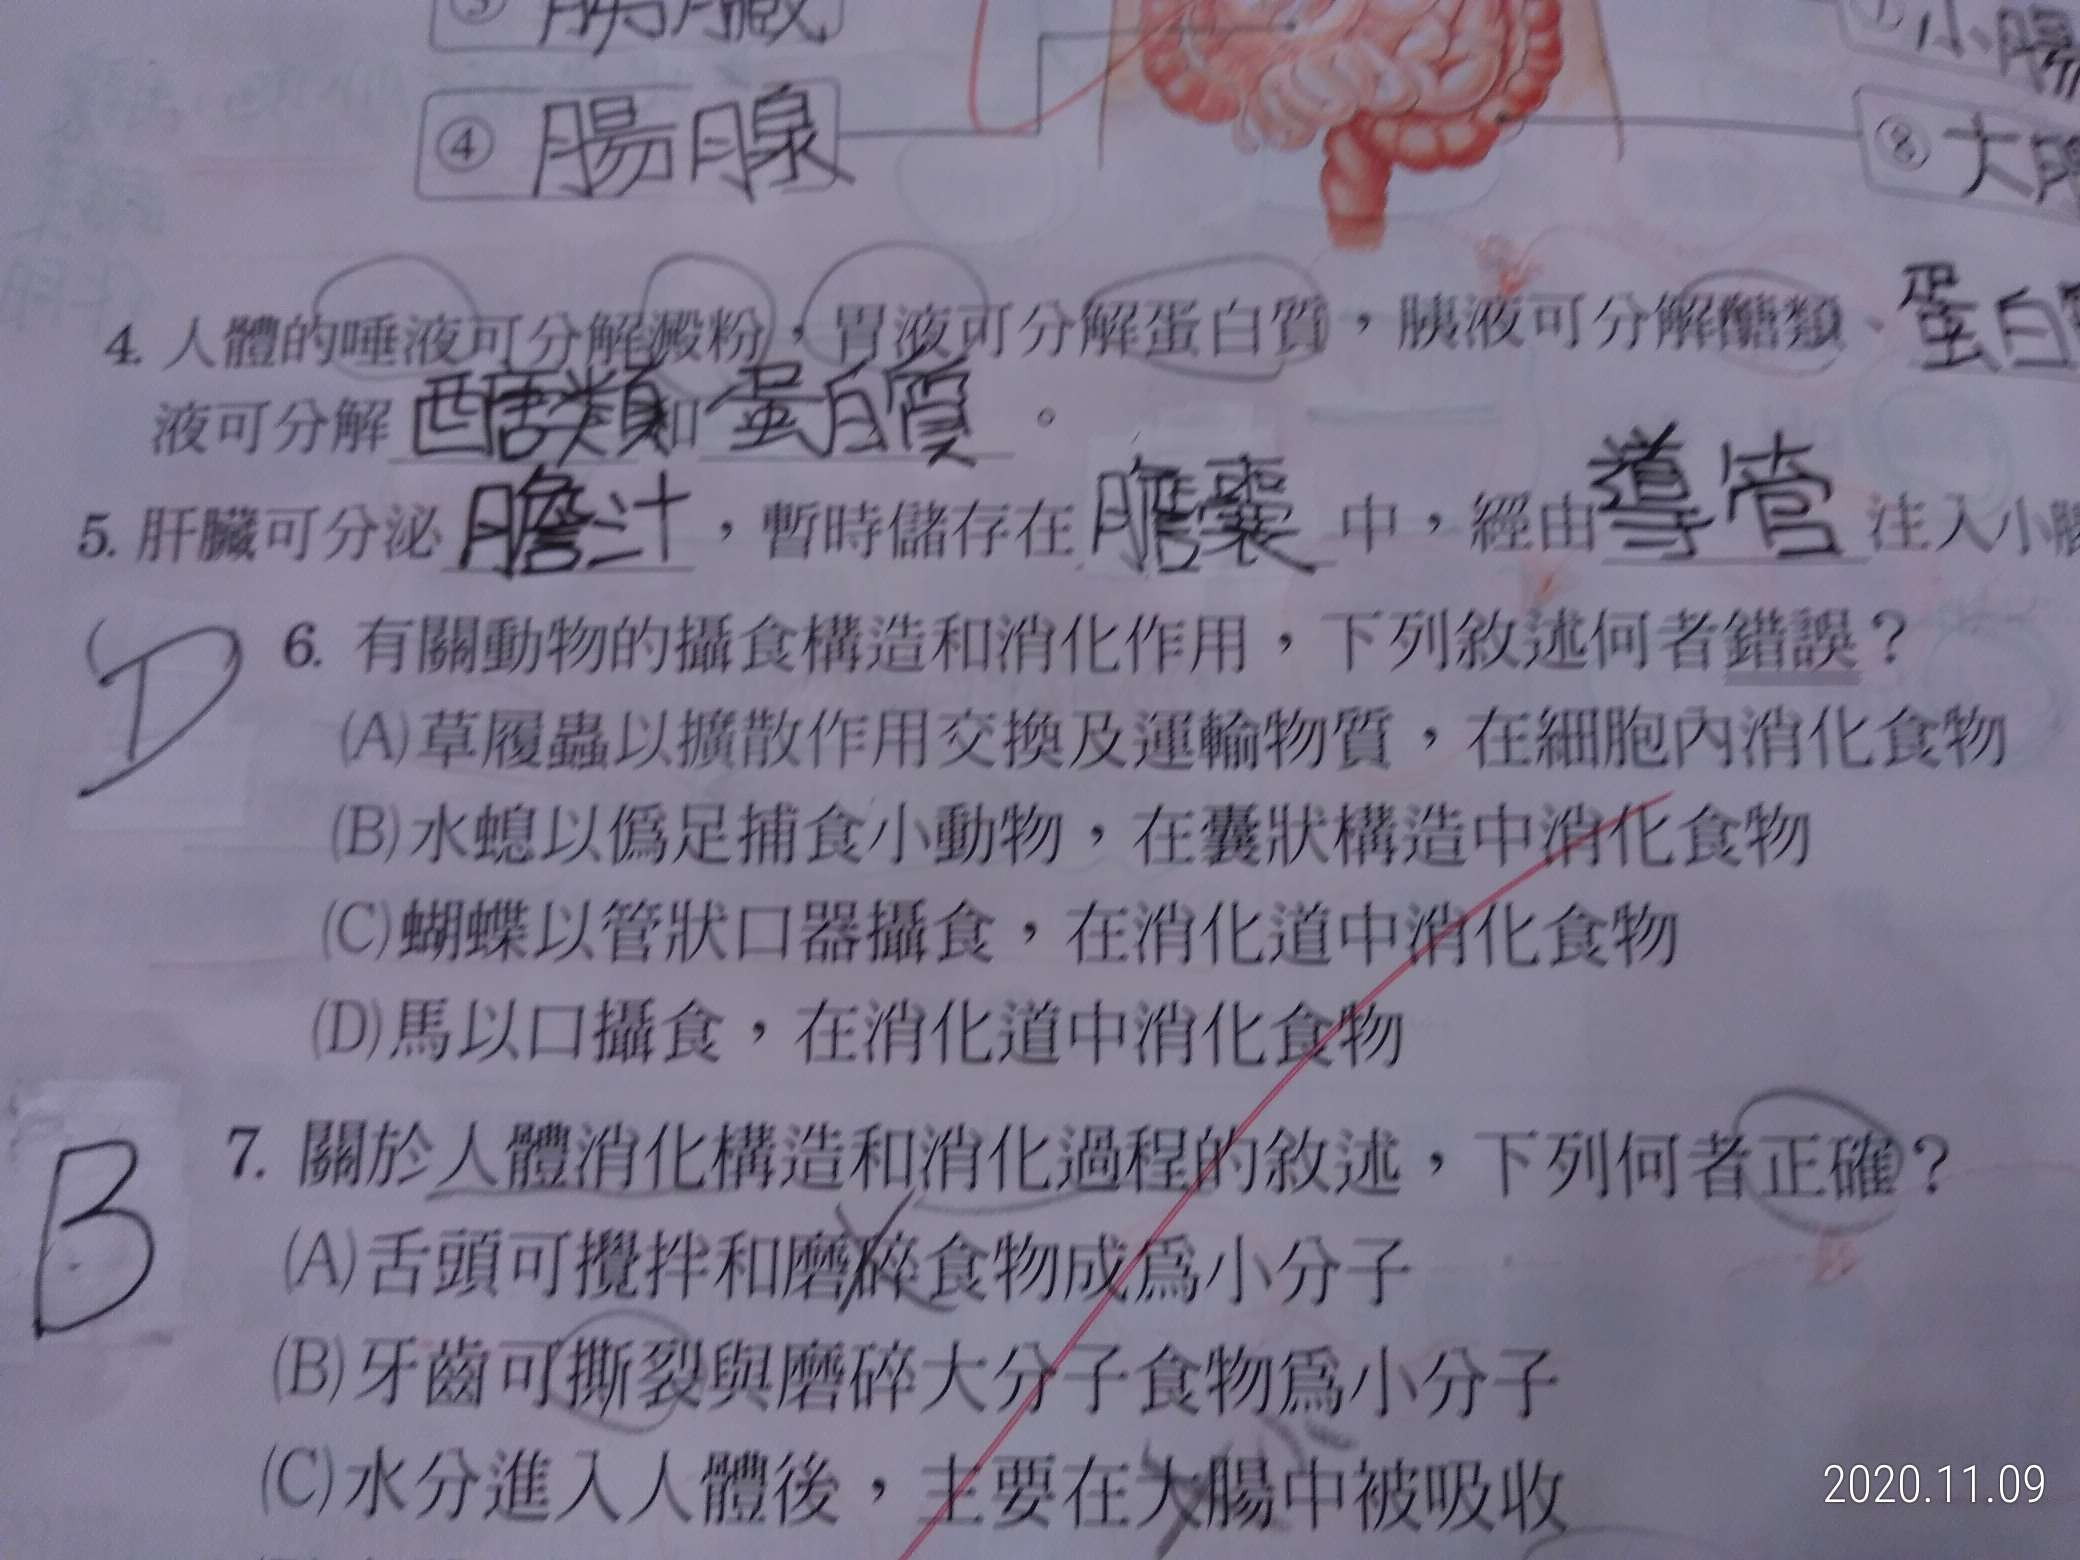 ④ 腸腺
小腸
⑧ 大
4. 人體的唾液可分解澱粉，胃液可分解蛋白質，胰液可分解醣類、蛋白
液可分解醣類和蛋白質。
5. 肝臟可分泌膽汁，暫時儲存在膽囊中，經由導管注入小腸
D 6. 有關動物的攝食構造和消化作用，下列敘述何者錯誤？
(A)草履蟲以擴散作用交換及運輸物質，在細胞內消化食物
(B)水螅以偽足捕食小動物，在囊狀構造中消化食物
(C)蝴蝶以管狀口器攝食，在消化道中消化食物
(D)馬以口攝食，在消化道中消化食物
B 7. 關於人體消化構造和消化過程的敘述，下列何者正確？
(A)舌頭可攪拌和磨碎食物成為小分子
(B)牙齒可撕裂與磨碎大分子食物為小分子
(C)水分進入人體後，主要在大腸中被吸收
2020.11.09